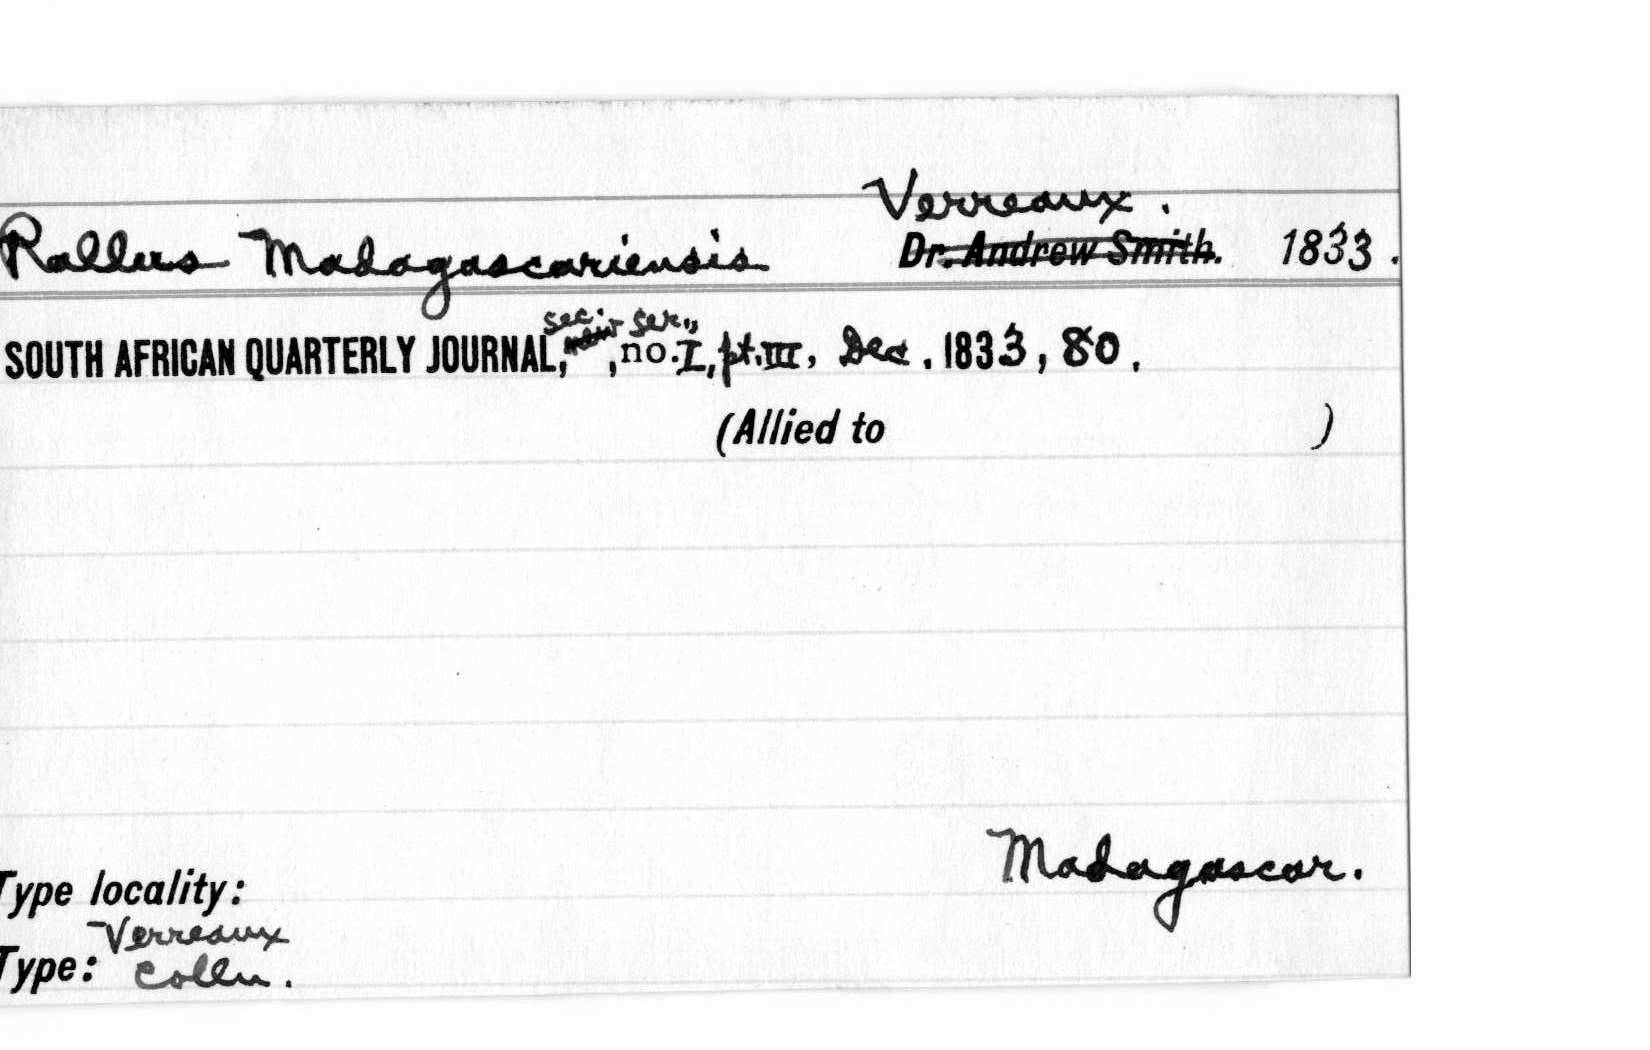 Verreaux.
Rallus Madagascariensis Dr. Andrew Smith. 1833.
sec. ser.,
SOUTH AFRICAN QUARTERLY JOURNAL, , no. I, pt. III, Dec. 1833, 80.
(Allied to )
Madagascar.
Type locality:
Verreaux
Type: Colln.